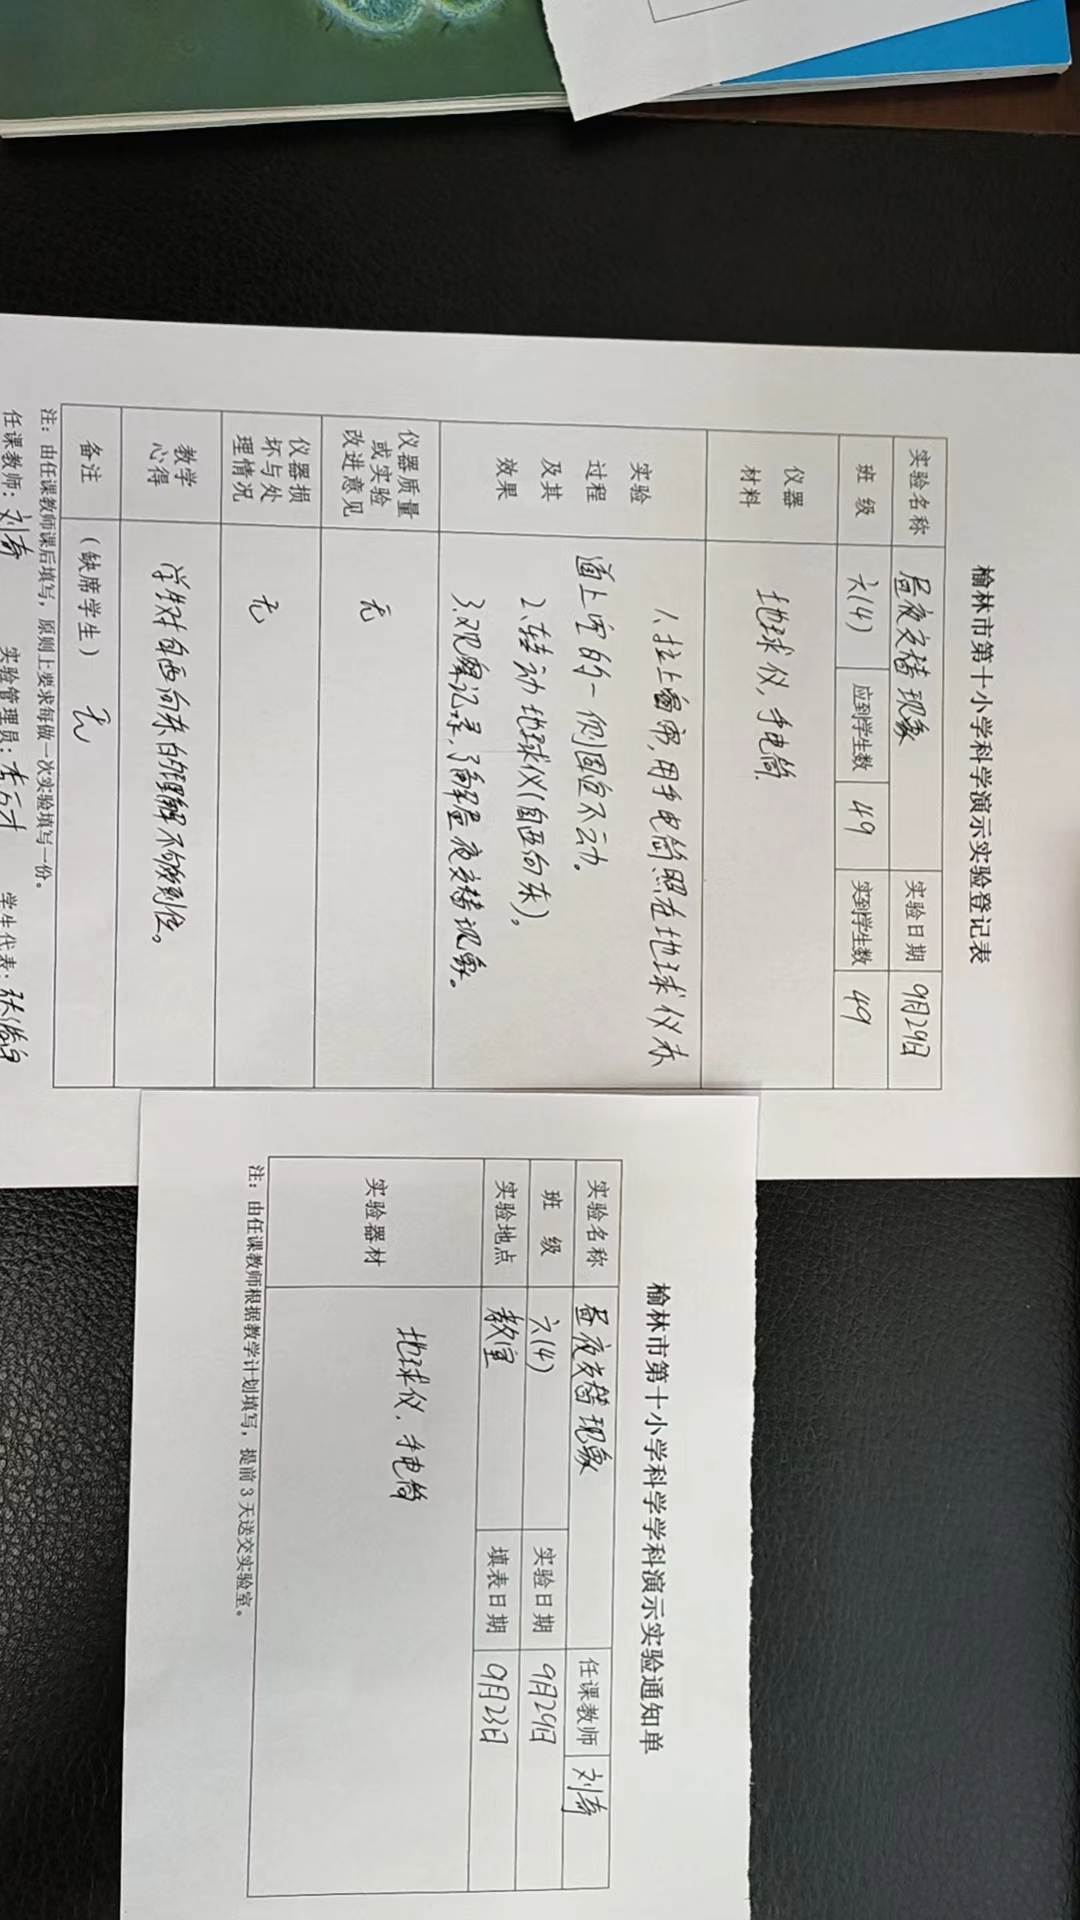 榆林市第十小学科学演示实验登记表
实验名称 昼夜交替现象 实验日期 9月29日
班 级 六(4) 应到学生数 49 实到学生数 49
仪器
材料 地球仪,手电筒
实验
过程
及其
效果
1、拉上窗帘,用手电筒照在地球仪赤
道上空的一侧固定不动。
2、转动地球仪(自西向东)。
3、观察记录,了解昼夜交替现象。
仪器质量
或实验
改进意见 无
仪器损
坏与处
理情况 无
教学
心得 学生对自西向东的理解不够到位。
备注 (缺席学生) 无
注:由任课教师课后填写,原则上要求每做一次实验填写一份。
任课教师:刘奇 实验管理员: 学生代表:
榆林市第十小学科学学科演示实验通知单
实验名称 昼夜交替现象 任课教师 刘奇
班 级 六(4) 实验日期 9月29日
实验地点 教室 填表日期 9月23日
实验器材 地球仪,手电筒
注:由任课教师根据教学计划填写,提前3天送交实验室。